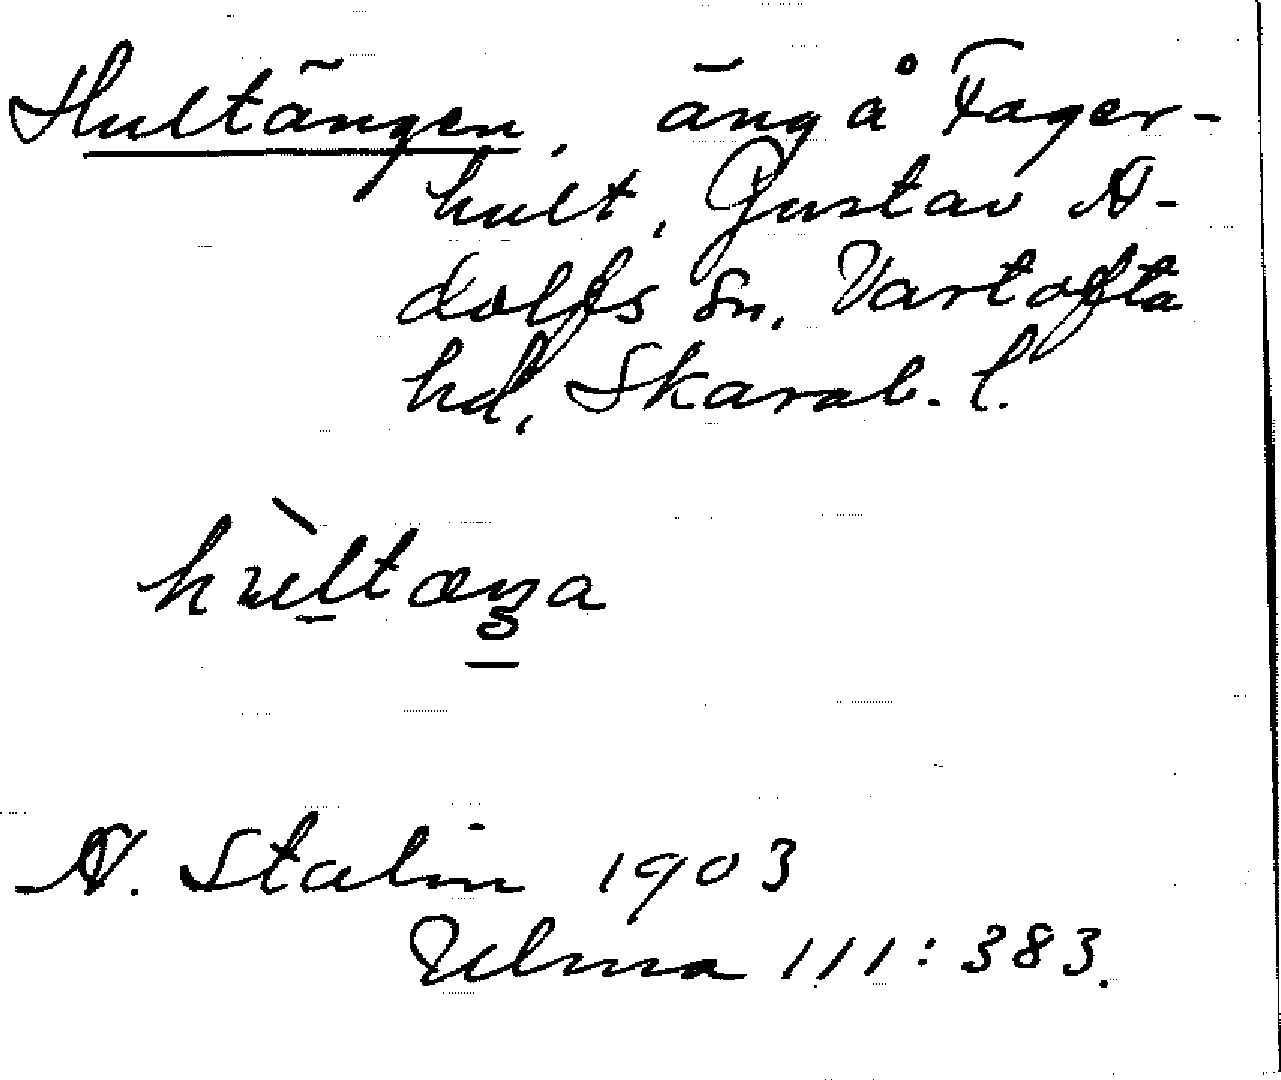 Hultängen, äng å Fager-
hult, Gustav A-
dolfs sn, Vartofta
hd, Skarab. l.
hùltæŋa
A. Stalin 1903
Ulma 111:383.